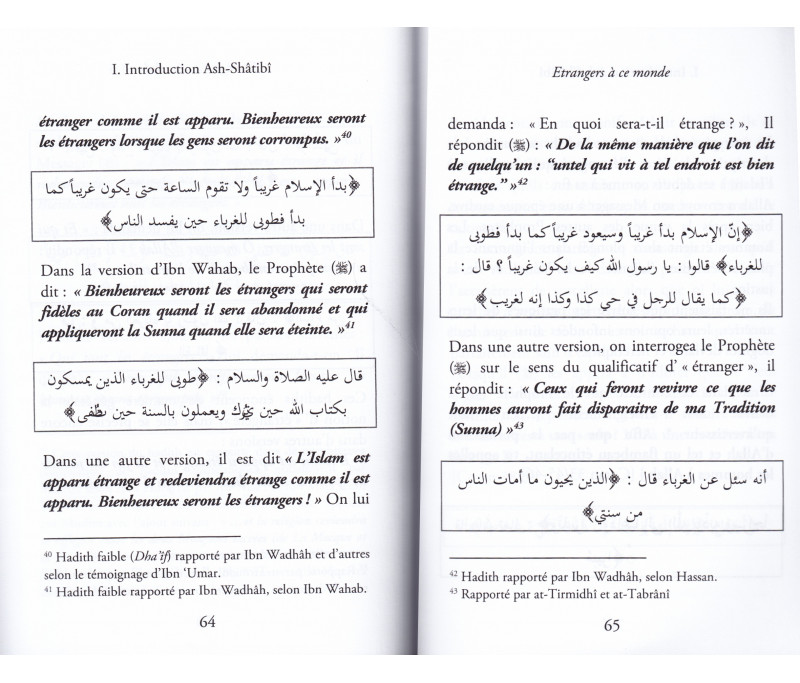 I. Introduction Ash-Shâtibî
étranger comme il est apparu. Bienheureux seront
les étrangers lorsque les gens seront corrompus. »40
﴿بدأ الإسلام غريباً ولا تقوم الساعة حتى يكون غريباً كما
بدأ فطوبى للغرباء حين يفسد الناس﴾
Dans la version d’Ibn Wahab, le Prophète (ﷺ) a
dit : « Bienheureux seront les étrangers qui seront
fidèles au Coran quand il sera abandonné et qui
appliqueront la Sunna quand elle sera éteinte. »41
قال عليه الصلاة والسلام : ﴿طوبى للغرباء الذين يمسكون
بكتاب الله حين يترك ويعملون بالسنة حين تطفى﴾
Dans une autre version, il est dit « L’Islam est
apparu étrange et redeviendra étrange comme il est
apparu. Bienheureux seront les étrangers ! » On lui
40 Hadith faible (Dha’îf) rapporté par Ibn Wadhâh et d’autres
selon le témoignage d’Ibn ‘Umar.
41 Hadith faible rapporté par Ibn Wadhâh, selon Ibn Wahab.
64
Etrangers à ce monde
demanda : « En quoi sera-t-il étrange ? », Il
répondit (ﷺ) : « De la même manière que l’on dit
de quelqu’un : “untel qui vit à tel endroit est bien
étrange.” »42
﴿إنّ الإسلام بدأ غريباً وسيعود غريباً كما بدأ فطوبى
للغرباء﴾ قالوا : يا رسول الله كيف يكون غريباً ؟ قال :
﴿كما يقال للرجل في حي كذا وكذا إنه لغريب﴾
Dans une autre version, on interrogea le Prophète
(ﷺ) sur le sens du qualificatif d’ « étranger », il
répondit : « Ceux qui feront revivre ce que les
hommes auront fait disparaitre de ma Tradition
(Sunna) »43
أنه سئل عن الغرباء قال : ﴿الذين يحيون ما أمات الناس
من سنتي﴾
42 Hadith rapporté par Ibn Wadhâh, selon Hassan.
43 Rapporté par at-Tirmidhî et at-Tabrânî
65